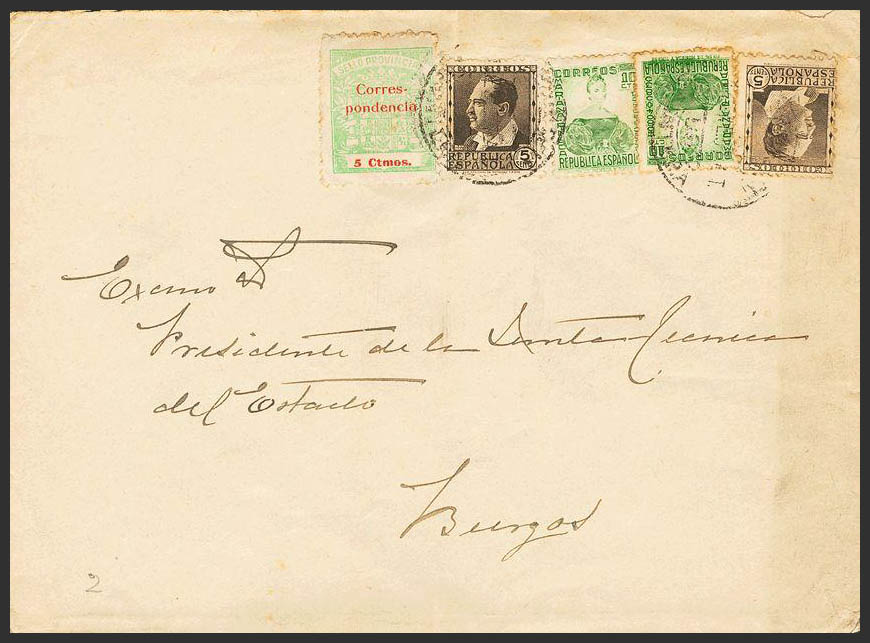 SELLO PROVINCIAL
Corres-
pondencia
5 Ctmos.
CORREOS
REPUBLICA
ESPAÑOLA
5
CENTS
CORREOS
10
CTS
REPUBLICA ESPAÑOLA
REPUBLICA
ESPAÑOLA
10
CORREOS
REPUBLICA
ESPAÑOLA
5
CENTS
CORREOS
Excmo Sr
Presidente de la Junta Tecnica
del Estado
Burgos
2